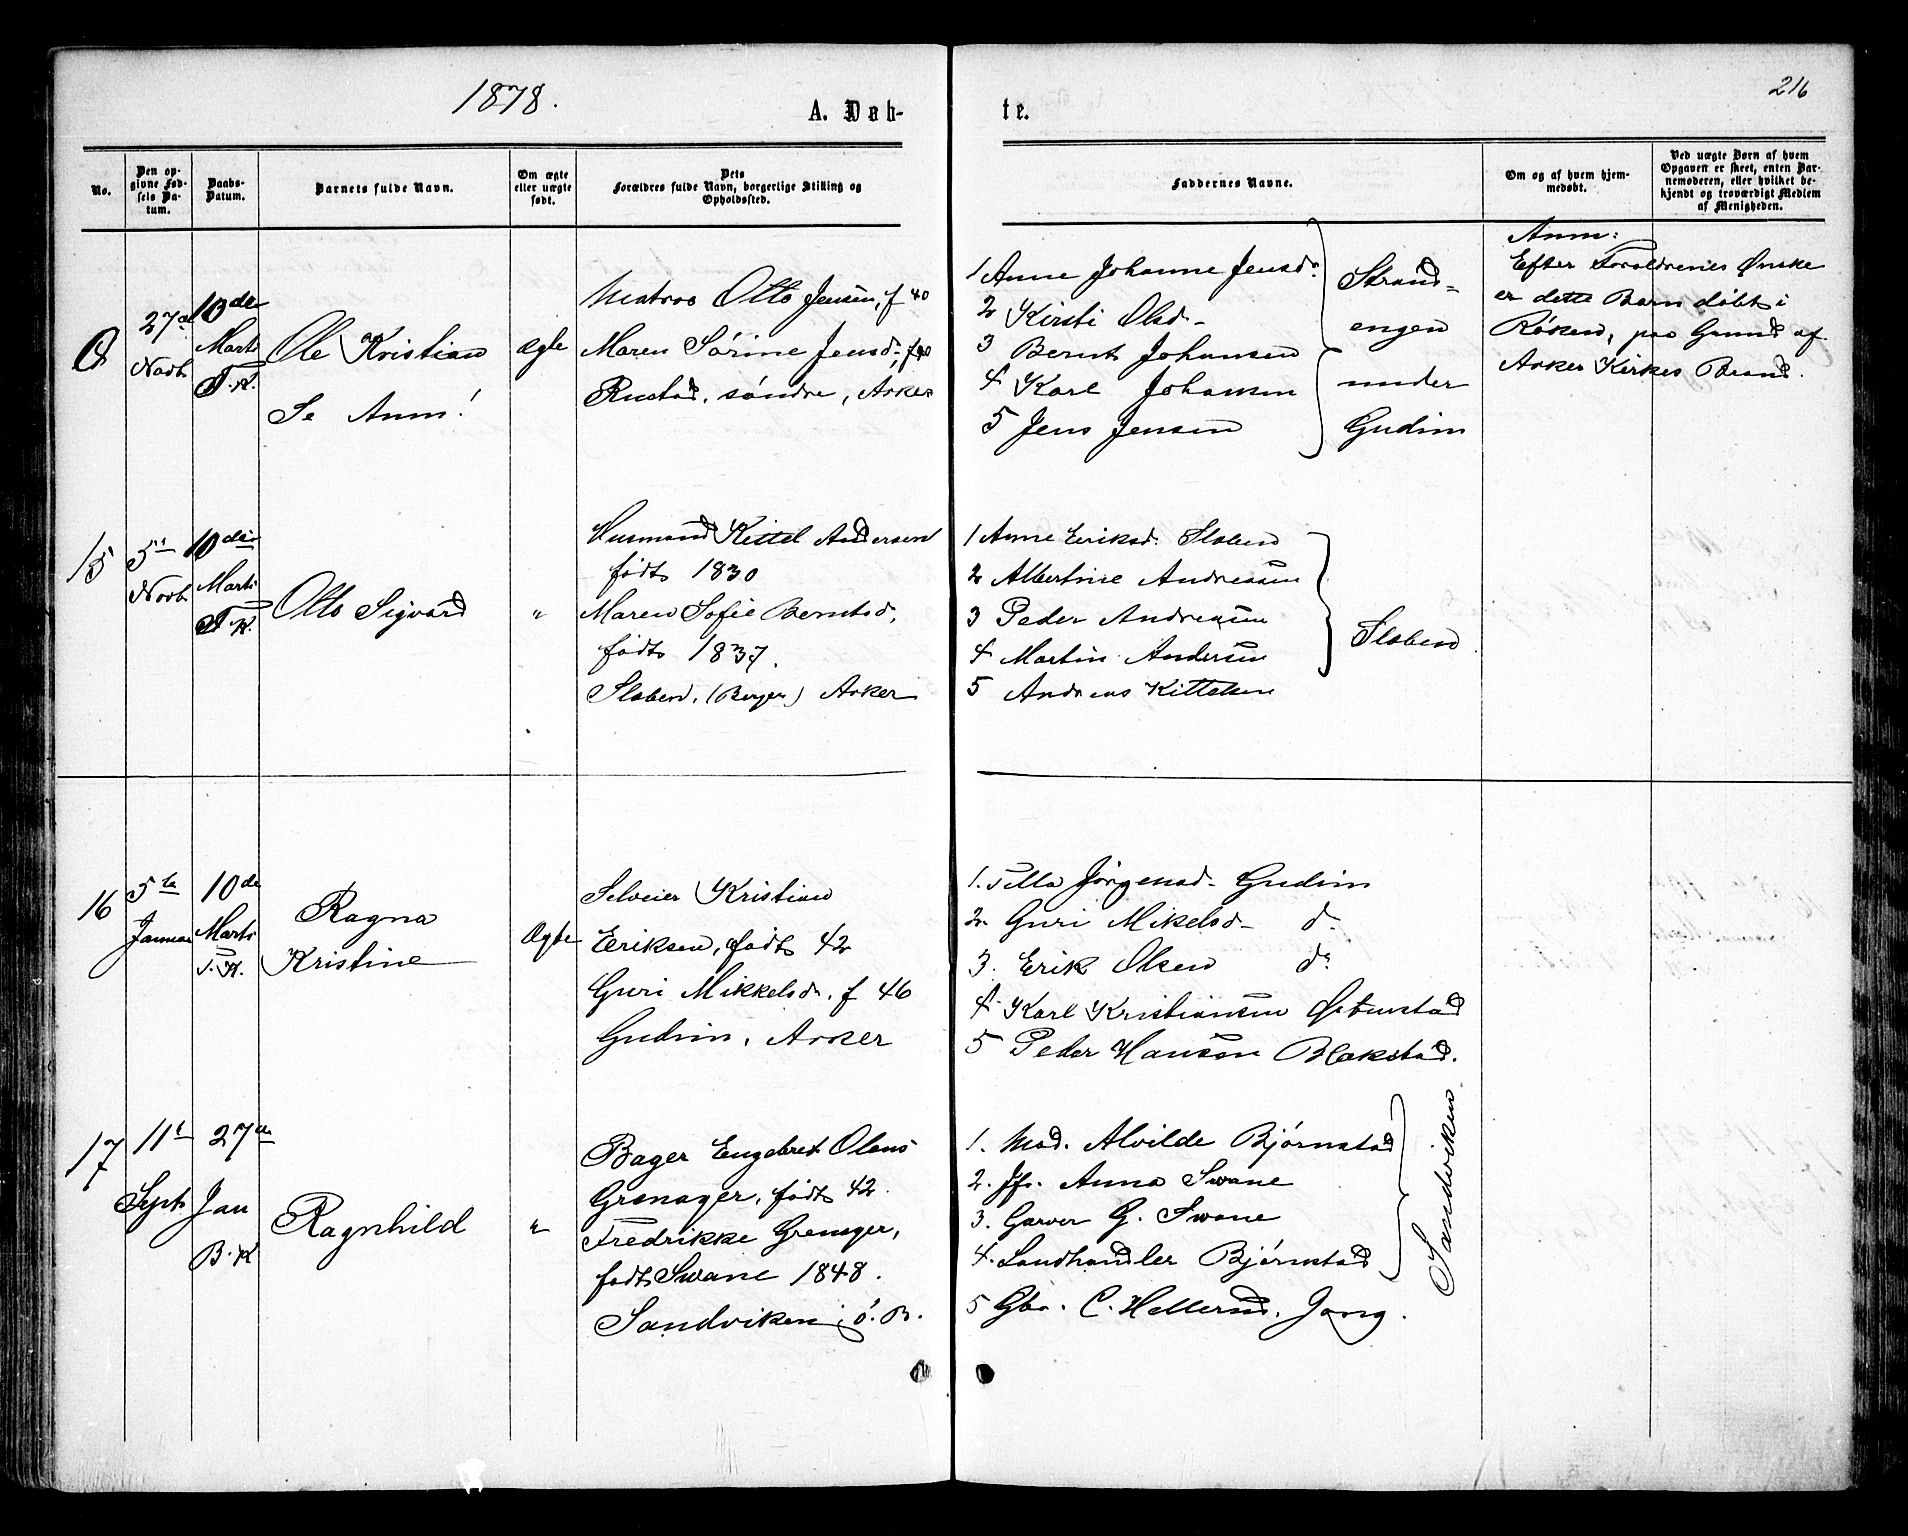 1878.
A. Døb-
te.
216
No.
Den op-
givne Fød-
sels Da-
tum.
Daabs-
Datum.
Barnets fulde Navn.
Om ægte
eller uægte
født.
Dets
Forældres fulde Navn, borgerlige Stilling og
Opholdssted.
Faddernes Navne.
Om og af hvem hjem-
medøbt.
Ved uægte Børn af hvem
Opgaven er skeet, enten Bar-
nemoderen, eller hvilket be-
kjendt og troværdigt Medlem
af Menigheden.
0
27de
Novb.
10de
Marts
T.K.
Ole Kristian
Se Anm!
ægte
Matros Otto Jensen, f 40
Maren Sørine Jensd., f 40
Rustad, søndre, Asker
1 Anne Johanne Jensdr
2 Kirsti Olsd-
3 Bernt Johansen
4 Karl Johansen
5 Jens Jensen
Strand-
engen
under
Gudim
Anm:
Efter Forældrenes Ønske
er dette Barn døbt i
Røken, paa Grund af
Asker Kirkes Brand.
15
5te
Novb.
10de
Marts
T.K.
Otto Sigvard
"
Husmand Kittel Andersen
født 1830
Maren Sofie Berntsd.
født 1837.
Sloben, (Berger) Asker
1 Anne Eriksd. Sloben
2 Albertine Andreasen
3 Peder Andreasen
4 Martin Andersen
5 Andreas Kittelsen
Sloben
16
5te
Januar
10de
Marts
T.K.
Ragna
Kristine
Ægte
Selveier Kristian
Eriksen, født 42
Guri Mikkelsd. f 46
Gudim, Asker
1. Jørgensd- Gudim
2. Guri Mikelsd- do
3. Erik Olsen do
4. Karl Kristiansen Østenstad
5 Peder Hansen Blakstad.
17
11te
Septb
27de
Jan
B.K
Ragnhild
"
Bager Engebret Olaus
Grønager, født 42.
Fredrikke Grønager,
født Swane 1848.
Sandviken i ø. B.
1. Mad. Alvilde Bjørnstad
2. Jfr. Anna Swane
3. Garver G. Swane
4. Landhandler Bjørnstad
5 Gbr. C. Hellerud. Jong.
Sandviken